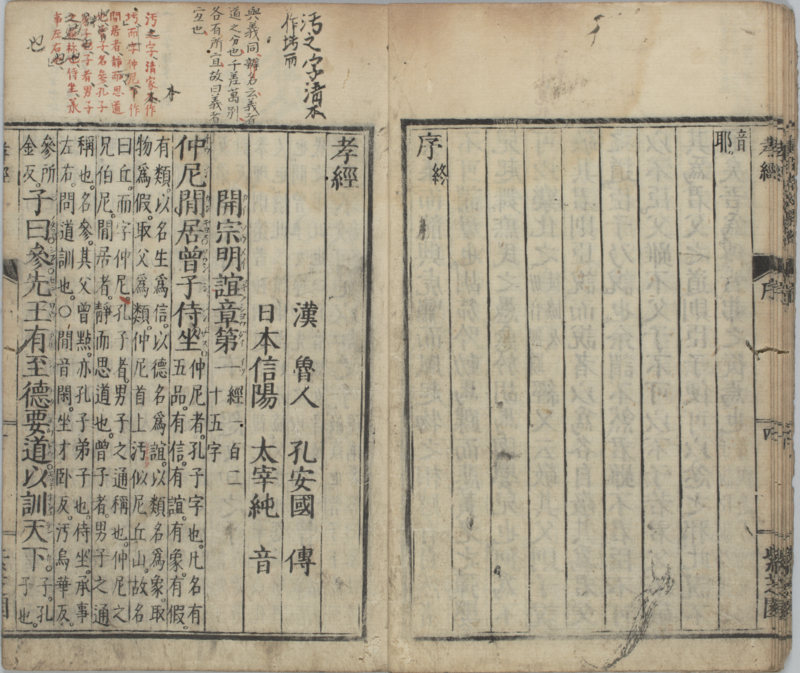 音耶
序終
孝經
序
孝經
漢 魯人 孔安國 傳
日本信陽 太宰純 音
開宗明誼章第一 經一百二
十五字
仲尼閒居曾子侍坐 仲尼者。孔子字也。凡名有
五品。有信。有誼。有象。有假。
有類。以名生爲信。以德名爲誼。以類名爲象。取
物爲假。取父爲類。仲尼首上汚。似尼丘山。故名
曰丘。而字仲尼。孔子者。男子之通稱也。仲尼之
兄伯尼。閒居者。靜而思道也。曾子者。男子之通
稱也。名參。其父曾點。亦孔子弟子也。侍坐。承事
左右。問道訓也。○閒音閑。坐才卧反。汚烏華反。
參所
金反。子曰。參。先王有至德要道。以訓天下。子。孔
子也。
汚之字清本
與義同辨名云義者
道之分也千差萬別
各有所宜故曰義者
宜也
汚之字、清家本作
閒居者、靜而思道
事左右也